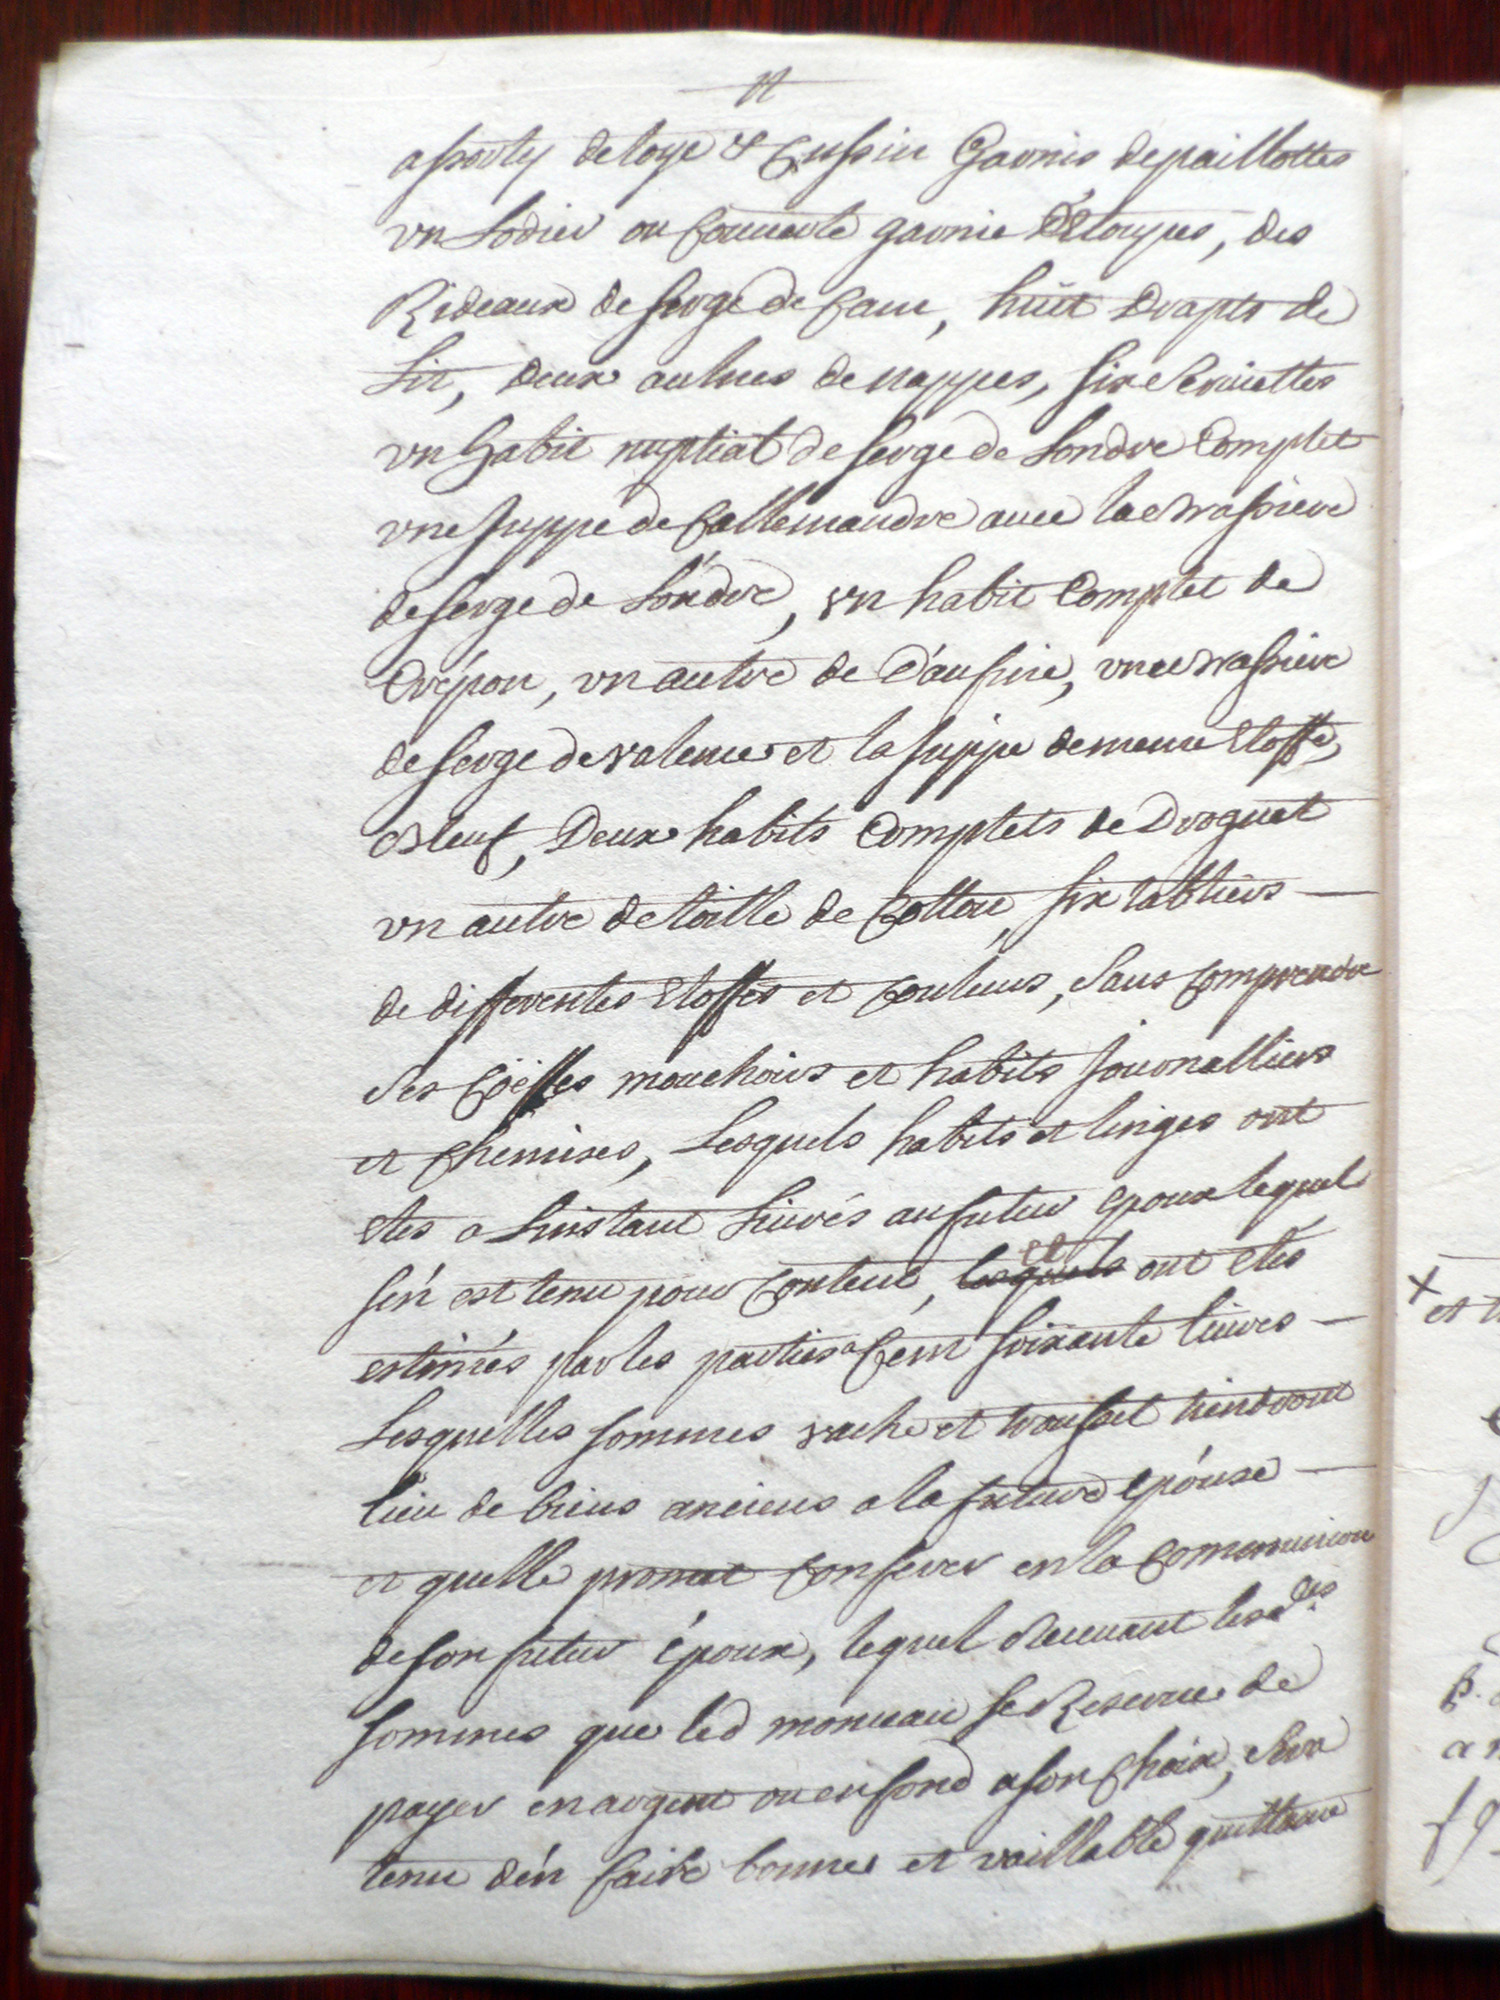 assorty de loye & Cussin Garnis de paillottes
vn Lodier ou Couuerte garnie D'Etoupes, des
Rideaux de serge de Caen, huit Drapts de
Lit, deux aulnes de nappes, six Seruiettes
vn habit nuptiat de serge de Londre Complet
vne juppe de Callemandre auec la Brassiere
de serge de Londre, vn habit Complet de
Crépon, vn autre de D'aufine, vne Brassiere
de serge de valence et la juppe de meme Etoffe,
Bleuf, Deux habits Complets de Droguet
vn autre de toille de Cotton, six tabliers
de differentes Etoffes et Couleurs, Sans Comprendre
Ses Coëffes mouchoirs et habits journalliers
et Chemises, Lesquels habits et linges ont
etes a Linstant Liurés au futur epoux lequel
s'en est tenu pour Content, lesquels et ont etés
estimés par les parties a Cent soixante liures
Lesquelles sommes vache et trousset tiendront
lieu de biens anciens a la future epouse
et quelle promet Conferer en la Communion
de son futur époux, lequel Receuant lesd.es
sommes que led monueau se Reserue de
payer en argent ou en fond a son Choix, Sera
tenu d'en faire bonne et vaillable quittance
et
a